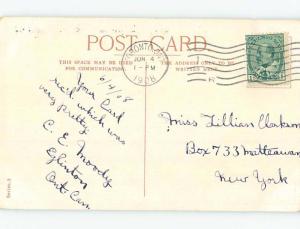 POST CARD
THIS SPACE MAY BE USED
FOR COMMUNICATION.
THE ADDRESS ONLY TO BE
WRITTEN HERE
TORONTO, ONT.
JUN 4
1-PM
1908
6/4/08
Your Card
rec'd which was
very pretty
C. E. Moody
Eglinton
Ont Can.
Miss Lillian Clarkson
Box 733 Matteawan
New York